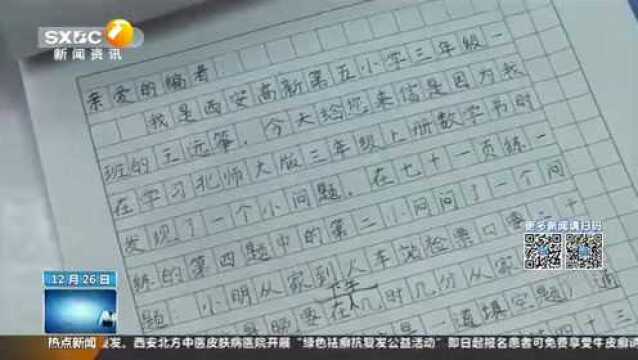 SXBC
新闻资讯
亲爱的编者：
我是西安高新第五小学三年级一
班的王远筝，今天给您来信是因为我
在学习北师大版三年级上册数学书时
发现了一个小问题，在七十一页练一
练的第四题中的第二小问问了一个问
题：小明从家到火车站检票口需
下午
在几时几分从家
填空题
更多新闻请扫码
12月26日
热点新闻
西安北方中医皮肤病医院开展“绿色祛癣抗复发公益活动”即日起报名患者可免费享受牛皮癣